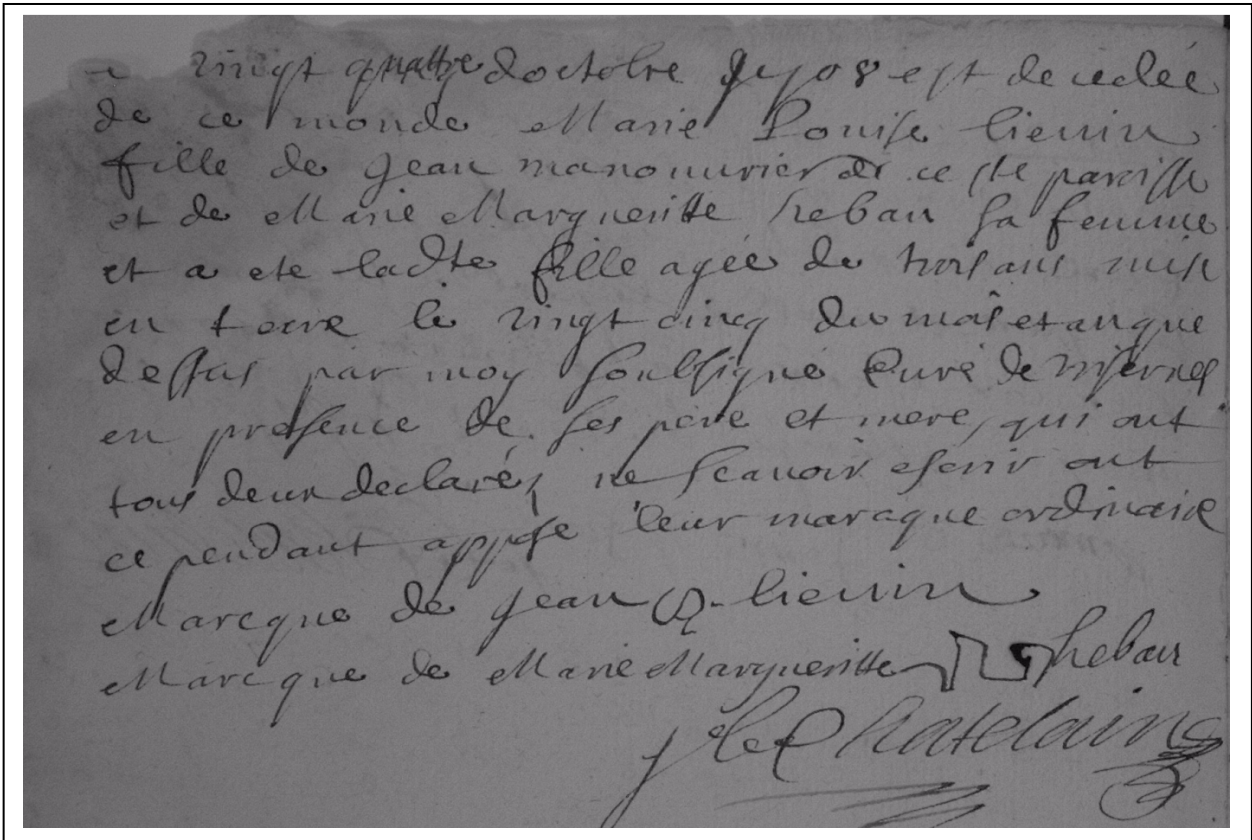 vingt quattre doctobre 1708 est decedée
de ce monde Marie Louise lieuin
fille de Jean manouurier de ceste paroisse
et de Marie Margueritte hebau sa femme
et a ete ladte fille agée de trois ans mise
en terre le vingt cinq du mois et an que
dessus par moy soubsigné Curé de
en presence de ses pere et mere, qui ont
tous deux declarés ne scauoir escrir ont
cependant appose leur maracque ordinaire
Marcque de Jean lieuin
Marcque de Marie Margueritte hebau
J le Chatelain